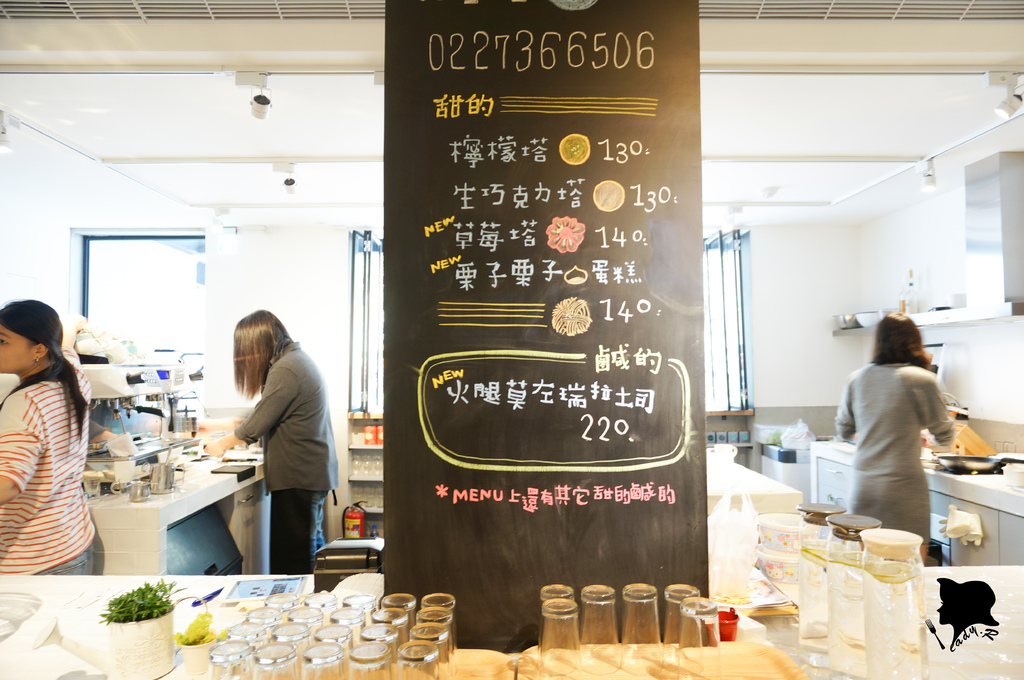 0227366506
甜的
檸檬塔 130.
生巧克力塔 130.
NEW 草莓塔 140.
NEW 栗子栗子蛋糕
140.
鹹的
NEW 火腿莫左瑞拉土司
220.
*MENU上還有其它甜的鹹的
lady.R